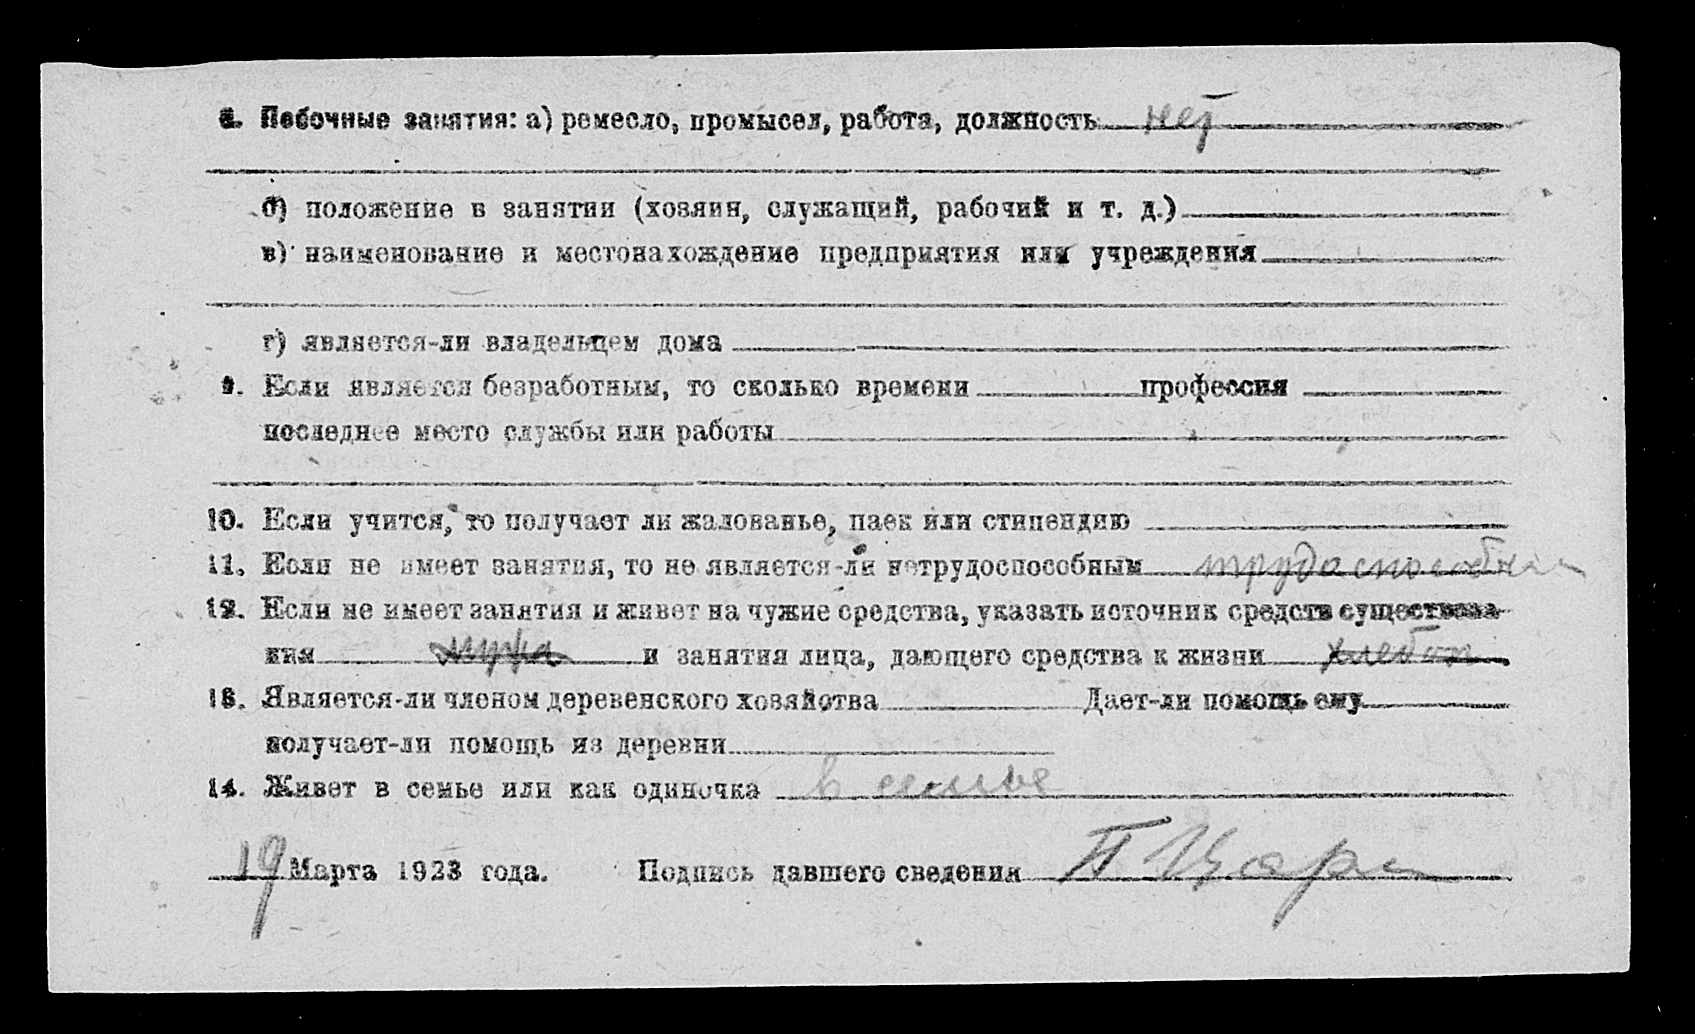 8. Побочные занятия: а) ремесло, промысел, работа, должность нет
б) положение в занятии (хозяин, служащий, рабочий и т. д.)
в) наименование и местонахождение предприятия или учреждения
г) является-ли владельцем дома
9. Если является безработным, то сколько времени профессия
последнее место службы или работы
10. Если учится, то получает ли жалованье, паек или стипендию
11. Если не имеет занятия, то не является-ли нетрудоспособным трудоспособный
12. Если не имеет занятия и живет на чужие средства, указать источник средств существова-
ния мужа и занятия лица, дающего средства к жизни хлебоп
13. Является-ли членом деревенского хозяйства Дает-ли помощь ему
получает-ли помощь из деревни
14. Живет в семье или как одиночка в семье
19 Марта 1923 года. Подпись давшего сведения П